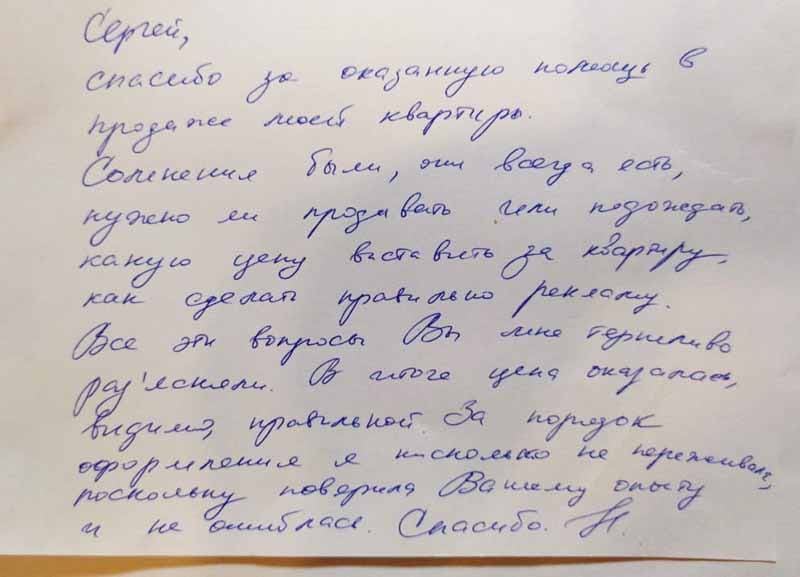 Сергей,
спасибо за оказанную помощь в
продаже моей квартиры.
Сомнения были, они всегда есть,
нужно ли продавать или подождать,
какую цену выставить за квартиру,
как сделать правильно рекламу.
Все эти вопросы Вы мне терпеливо
раз'ясняли. В итоге цена оказалась,
видимо, правильной. За порядок
оформления я нисколько не переживала,
поскольку поверила Вашему опыту
и не ошиблась. Спасибо.